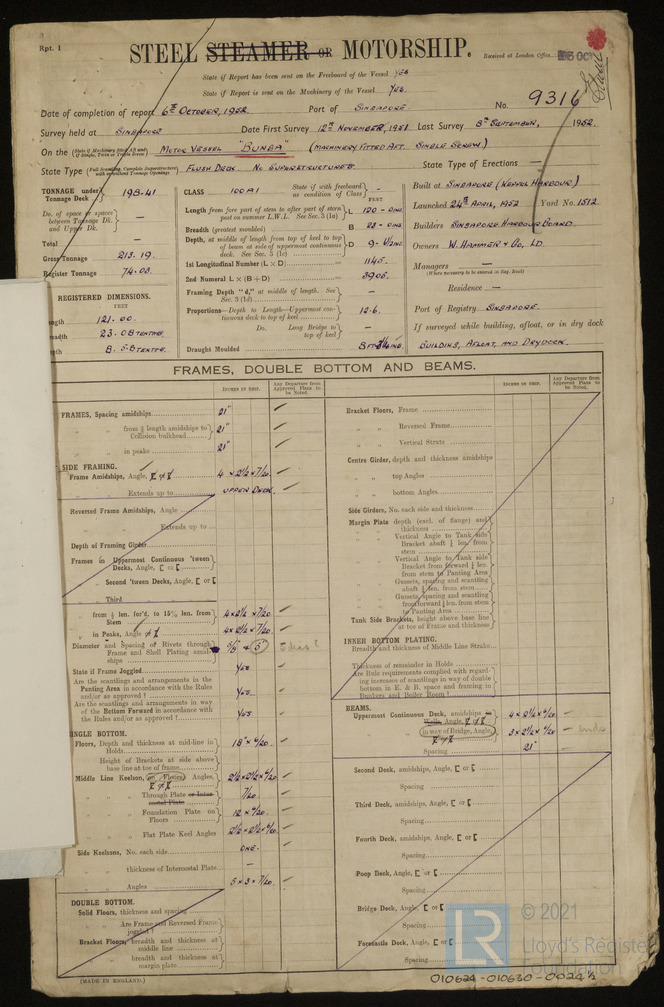 Rpt. 1
STEEL STEAMER OR MOTORSHIP.
Received at London Office
State if Report has been sent on the Freeboard of the Vessel YES
State if Report is sent on the Machinery of the Vessel YES.
Date of completion of report 6TH OCTOBER, 1952 Port of SINGAPORE No. 9316
Survey held at SINGAPORE Date First Survey 12TH NOVEMBER, 1951 Last Survey 8TH SEPTEMBER, 1952.
On the MOTOR VESSEL "BUNGA" (MACHINERY FITTED AFT. SINGLE SCREW)
State Type FLUSH DECK NO SUPERSTRUCTURES State Type of Erections —
TONNAGE under Tonnage Deck 198.41
Do. of space or spaces between Tonnage Dk. and Upper Dk. —
Total —
Gross Tonnage 213.19.
Register Tonnage 74.03.
REGISTERED DIMENSIONS.
FEET
121.00.
23.0
8.5
CLASS 100A1 State if with freeboard as condition of Class —
FEET
Length from fore part of stem to after part of stern post on summer L.W.L. See Sec. 3 (1a) L 120 - 0INS
Breadth (greatest moulded) B 23 - 0INS
Depth, at middle of length from top of keel to top of beam at side of uppermost continuous deck. See Sec. 3 (1c) D
1st Longitudinal Number (L × D) 1145.
2nd Numeral L × (B + D) 3905.
Framing Depth "d," at middle of length. See Sec. 3 (1d) —
Proportions—Depth to Length—Uppermost continuous deck to top of keel 12.6.
Do. Long Bridge to top of keel —
Draught Moulded
Built at SINGAPORE (KEPPEL HARBOUR)
Launched 24TH APRIL, 1952 Yard No. 1512
Builders SINGAPORE HARBOUR BOARD
Owners W. HAMMER & CO, LD.
Managers —
(Where necessary to be entered in Reg. Book)
Residence —
Port of Registry SINGAPORE.
If surveyed while building, afloat, or in dry dock
BUILDING, AFLOAT, AND DRYDOCK.
FRAMES, DOUBLE BOTTOM AND BEAMS.
INCHES IN SHIP. Any Departure from Approved Plans to be Noted.
INCHES IN SHIP. Any Departure from Approved Plans to be Noted.
FRAMES, Spacing amidships 21"
" " from ⅗ length amidships to Collision bulkhead 21"
" " in peaks 21"
SIDE FRAMING.
Frame Amidships, Angle, 4 × 2½ × 7/20.
" " Extends up to UPPER DECK.
Reversed Frame Amidships, Angle
" " Extends up to
Depth of Framing Girder
Frames in Uppermost Continuous 'tween Decks, Angle, [ or [
" Second 'tween Decks, Angle, [ or [
" Third
" from ⅕ len. for'd. to 15% len. from Stem 4 × 2½ × 7/20
" in Peaks, Angle 4 × 2½ × 7/20.
Diameter and Spacing of Rivets through Frame and Shell Plating amidships 5/8 & 5"
State if Frame Joggled YES
Are the scantlings and arrangements in the Panting Area in accordance with the Rules and/or as approved? YES.
Are the scantlings and arrangements in way of the Bottom Forward in accordance with the Rules and/or as approved? YES
SINGLE BOTTOM.
Floors, Depth and thickness at mid-line in Holds 18" × 6/20.
Height of Brackets at side above base line at toe of frame —
Middle Line Keelson, on Floors, Angles, 2½ × 2½ × 6/20.
" " Through Plate or Intercostal Plate 7/20.
" " Foundation Plate on Floors 12 × 9/20.
" " Flat Plate Keel Angles 2½ × 2½ × 6/20.
Side Keelsons, No. each side ONE.
" " thickness of Intercostal Plate —
" " Angles 5 × 3 × 7/20.
DOUBLE BOTTOM.
Solid Floors, thickness and spacing
" " Are Frame and Reversed Frame joggled?
Bracket Floors, breadth and thickness at middle line
" " breadth and thickness at margin plate
Bracket Floors, Frame
" " Reversed Frame
" " Vertical Struts
Centre Girder, depth and thickness amidships
" " top Angles
" " bottom Angles
Side Girders, No. each side and thickness
Margin Plate depth (excl. of flange) and thickness
" " Vertical Angle to Tank side Bracket abaft ¼ len. from stem
" " Vertical Angle to Tank side Bracket from forward ¼ len. from stem to Panting Area
" " Gussets, spacing and scantling abaft ¼ len. from stem
" " Gussets, spacing and scantling from forward ¼ len. from stem to Panting Area
Tank Side Brackets, height above base line at toe of Frame and thickness
INNER BOTTOM PLATING.
Breadth and thickness of Middle Line Strake
Thickness of remainder in Holds
Are Rule requirements complied with regarding increases of scantlings in way of double bottom in E. & B. space and framing in Bunkers and Boiler Room?
BEAMS.
Uppermost Continuous Deck, amidships Wells, Angle, 4 × 2½ × 6/20
in way of Bridge, Angle, 3 × 2½ × 6/20
Spacing 21"
Second Deck, amidships, Angle, [ or [
Spacing
Third Deck, amidships, Angle, [ or [
Spacing
Fourth Deck, amidships, Angle, [ or [
Spacing
Poop Deck, Angle, [ or [
Spacing
Bridge Deck, Angle, [ or [
Spacing
Forecastle Deck, Angle, [ or [
Spacing
(MADE IN ENGLAND.)
LR
© 2021
Lloyd's Register
Foundation
010624-010630-0024½